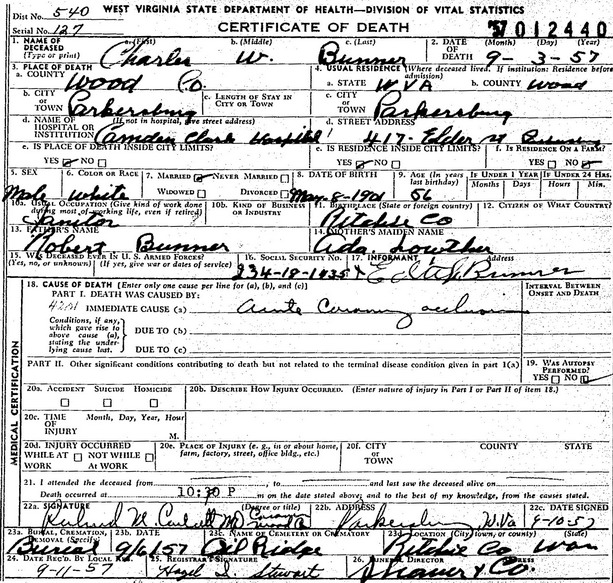 WEST VIRGINIA STATE DEPARTMENT OF HEALTH—DIVISION OF VITAL STATISTICS
Dist No. 540
CERTIFICATE OF DEATH
57 012440
Serial No. 127
1. NAME OF DECEASED (Type or print) a. (First) b. (Middle) c. (Last) 2. DATE OF DEATH (Month) (Day) (Year)
Charles W. Bunner 9- 3-57
3. PLACE OF DEATH 4. USUAL RESIDENCE (Where deceased lived. If institution: Residence before admission)
a. COUNTY Wood Co. a. STATE W VA b. COUNTY Wood
b. CITY OR TOWN Parkersburg c. LENGTH OF STAY IN CITY OR TOWN c. CITY OR TOWN Parkersburg
d. NAME OF HOSPITAL OR INSTITUTION (If not in hospital, give street address) Camden Clark Hospital d. STREET ADDRESS 417- Elder St
e. IS PLACE OF DEATH INSIDE CITY LIMITS? YES NO e. IS RESIDENCE INSIDE CITY LIMITS? YES NO f. IS RESIDENCE ON A FARM? YES NO
5. SEX 6. COLOR OR RACE 7. MARRIED NEVER MARRIED WIDOWED DIVORCED 8. DATE OF BIRTH 9. AGE (In years last birthday) IF UNDER 1 YEAR Months Days IF UNDER 24 HRS. Hours Min.
Male White May 8-1901 56
10a. USUAL OCCUPATION (Give kind of work done during most of working life, even if retired) 10b. KIND OF BUSINESS OR INDUSTRY 11. BIRTHPLACE (State or foreign country) 12. CITIZEN OF WHAT COUNTRY?
Janitor Ritchie Co
13. FATHER'S NAME 14. MOTHER'S MAIDEN NAME
Robert Bunner Ada Lowther
15. WAS DECEASED EVER IN U.S. ARMED FORCES? (Yes, no, or unknown) (If yes, give war or dates of service) 16. SOCIAL SECURITY NO. 17. INFORMANT
234-18-1435 Bunner
18. CAUSE OF DEATH [Enter only one cause per line for (a), (b), and (c)] INTERVAL BETWEEN ONSET AND DEATH
PART I. DEATH WAS CAUSED BY:
4201 IMMEDIATE CAUSE (a) Acute Coronary occlusion
Conditions, if any, which gave rise to above cause (a), stating the underlying cause last. DUE TO (b)
DUE TO (c)
PART II. Other significant conditions contributing to death but not related to the terminal disease condition given in part 1(a) 19. WAS AUTOPSY PERFORMED? YES NO
MEDICAL CERTIFICATION
20a. ACCIDENT SUICIDE HOMICIDE 20b. DESCRIBE HOW INJURY OCCURRED. (Enter nature of injury in Part I or Part II of item 18.)
20c. TIME OF INJURY Month, Day, Year, Hour M.
20d. INJURY OCCURRED WHILE AT WORK NOT WHILE AT WORK 20e. PLACE OF INJURY (e. g., in or about home, farm, factory, street, office bldg., etc.) 20f. CITY OR TOWN COUNTY STATE
21. I attended the deceased from , to and last saw the deceased alive on
Death occurred at 10:30 P m on the date stated above; and to the best of my knowledge, from the causes stated.
22a. SIGNATURE (Degree or title) 22b. ADDRESS 22c. DATE SIGNED
Richard N. MD Coroner Wood Co Parkersburg W.Va 9-10-57
23a. BURIAL, CREMATION, REMOVAL (Specify) 23b. DATE 23c. NAME OF CEMETERY OR CREMATORY 23d. LOCATION (City, town, or county) (State)
Burial 9/6/57 Oil Ridge Ritchie Co
24. DATE REC'D. BY LOCAL REG. 25. REGISTRAR'S SIGNATURE 26. FUNERAL DIRECTOR
9-11-57 Hazel I. Stewart & Co.